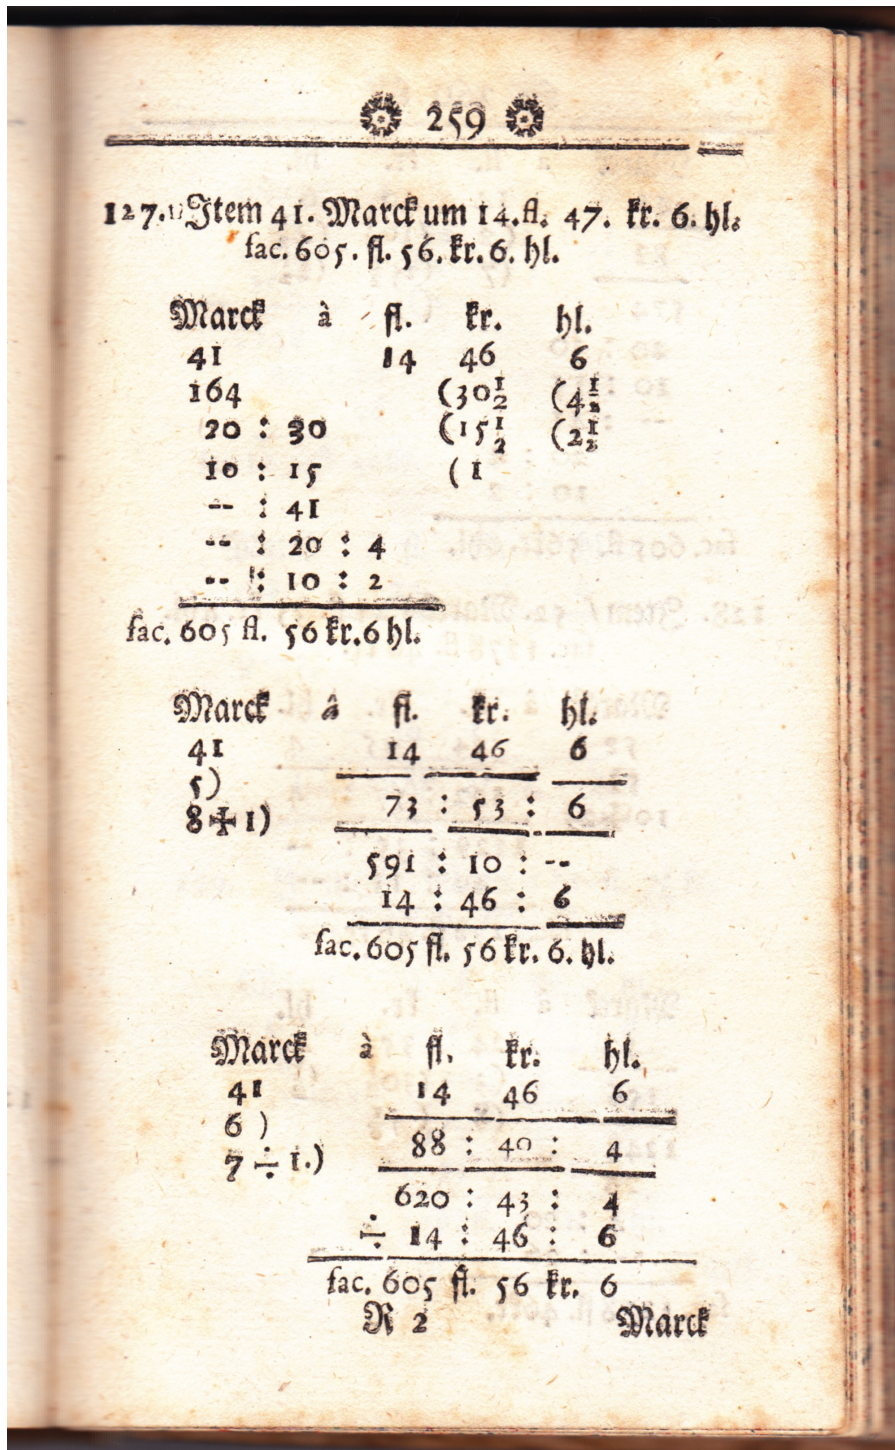 259
127. Item 41. Marck um 14. fl. 47. kr. 6. hl.
fac. 605. fl. 56. kr. 6. hl.
Marck à fl. kr. hl.
41 14 46 6
164 (30½ (4½
20 : 30 (15½ (2½
10 : 15 (1
-- : 41
-- : 20 : 4
-- : 10 : 2
fac. 605 fl. 56 kr. 6 hl.
Marck â fl. kr. hl.
41 14 46 6
5)
73 : 53 : 6
8✠1)
591 : 10 : --
14 : 46 : 6
fac. 605 fl. 56 kr. 6. hl.
Marck à fl. kr. hl.
41 14 46 6
6 )
88 : 40 : 4
7 ÷ 1.)
620 : 43 : 4
÷ 14 : 46 : 6
fac. 605 fl. 56 kr. 6
R 2 Marck